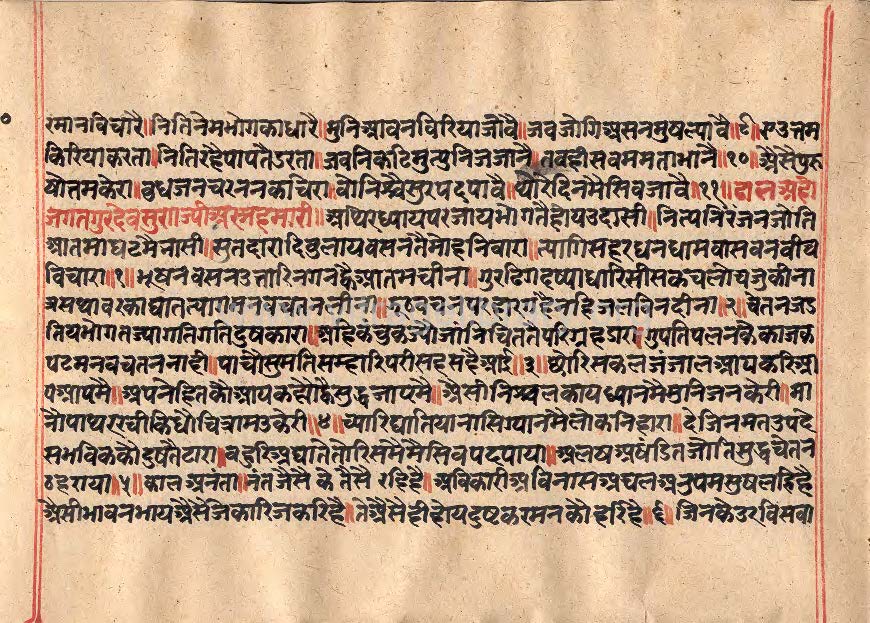 रमानविचारै॥नितिनेमभोगकाधारै॥मुनिआवनविरियाजोवै॥जवजोगिअसनमुषल्यावै॥९॥एउत्तम
किरियाकरता॥नितिरहैपापतैऽरता॥जवनिकटिमृत्युनिजजानै॥तवहीसवममताभानै॥१०॥अैसैपुरु
षोतमकेरा॥वुधजनचरननकचेरा॥वोनिश्चैसुरपदपावै॥थोरेदिनमैसिवजावै॥११॥ढालअहो
जगतगुरदेवसुणज्योअरजहमारी॥अथिरध्यायपरजायभोगतैहोयउदासी॥नित्यनिरंजनजोति
आतमाघटमैनासी॥सुतदारादिवुलायवसनतैमोहनिवारा॥त्यागिसहरधनधामवासवनवीच
विचारा॥१॥भूषनवसनउतारिनगनह्वैआतमचीना॥गुरढिगदष्याधारिसीसकचलोचजुकीना
त्रसथावरकाघातत्यागमनवचतनलीना॥झूठवचनपरहारगहैनहिजलविनदीना॥२॥चेतनजड
तियभोगतज्यागतिगतिदुषकारा॥अहिकंचुकज्योंजानिचिततेपरिग्रहडारा॥गुपतिपलनकैकाजक
पटमनवचतननाही॥पाचौसुमतिसम्हारिपरीसहसहैआई॥३॥छोरिसकलजंजालआपकरिआ
पआपमै॥अपनेहितकौआपकहोह्वैसुद्धजापमै॥अैसीनिश्चलकायध्यानमैमुनिजनकेरी॥मा
नौपाथररचीकिधौचित्रामउकेरी॥४॥च्यारिघातियानासिग्यानमैलोकनिहारा॥देजिनमतउपदे
सभविककौदुषतैटारा॥वहुरिअघातेतोरिसमैमैसिवपदपाया॥अलषअषंडितजोतिसुद्धचेतन
ठहराया॥५॥कालअनंता॥नंतजैसैकेतैसैरहिहै॥अविकारीअविनासअचलअनुपमसुषलहिहै
अैसीभावनभायअैसेजेकारिजकरिहै॥तेअैसेहीहोयदुष्टकरमनकौहरिहै॥६॥जिनकेउरविसवा